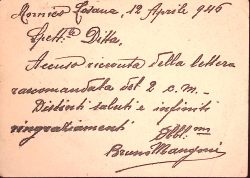 12 Aprile 946
Spett.le Ditta,
Accuso ricevuta della lettera
raccomandata del 2 c.m. -
Distinti saluti e infiniti
ringraziamenti
Obbl.mo
Bruno Mangoni